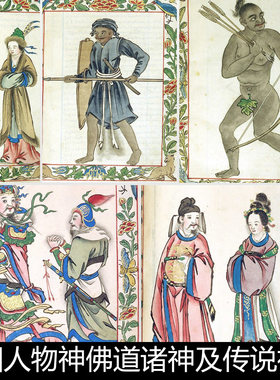 人物神佛道诸神及传说